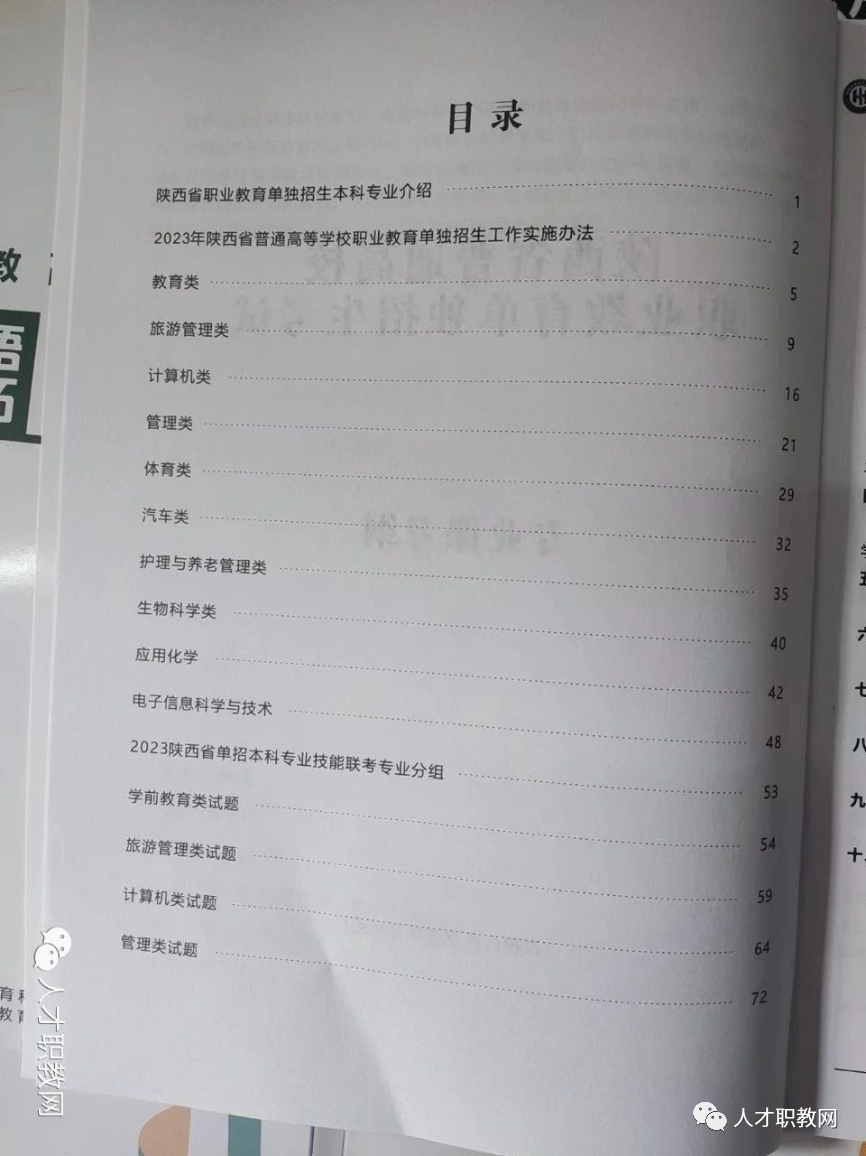 目录
陕西省职业教育单独招生本科专业介绍 1
2023年陕西省普通高等学校职业教育单独招生工作实施办法 2
教育类 5
旅游管理类 9
计算机类 16
管理类 21
体育类 29
汽车类 32
护理与养老管理类 35
生物科学类 40
应用化学 42
电子信息科学与技术 48
2023陕西省单招本科专业技能联考专业分组 53
学前教育类试题 54
旅游管理类试题 59
计算机类试题 64
管理类试题 72
教
语
育科
教育
六
七
八
九
十
人才职教网
人才职教网